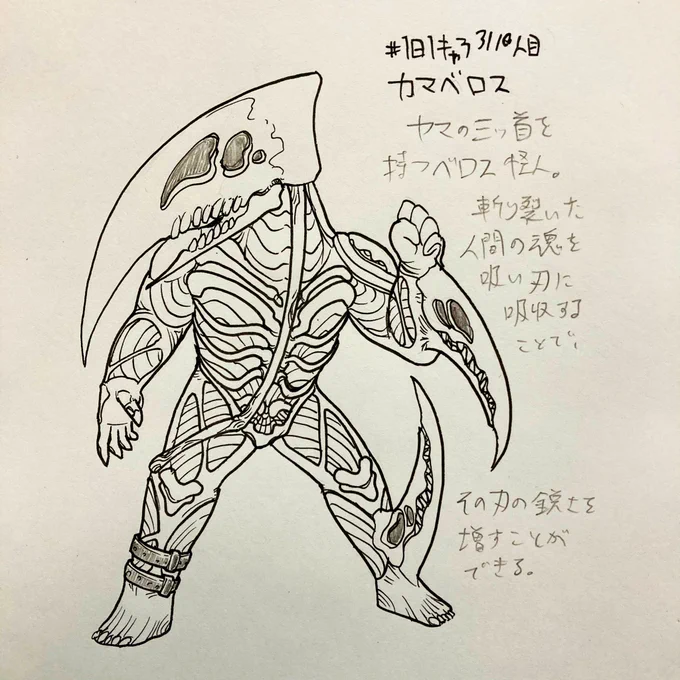 #1日1キャラ 人目
カマベロス
カマの三ッ首を
持つベロス怪人。
斬り裂いた
人間の魂を
吸い刃に
吸収する
ことで、
その刃の鋭さを
増すことが
できる。